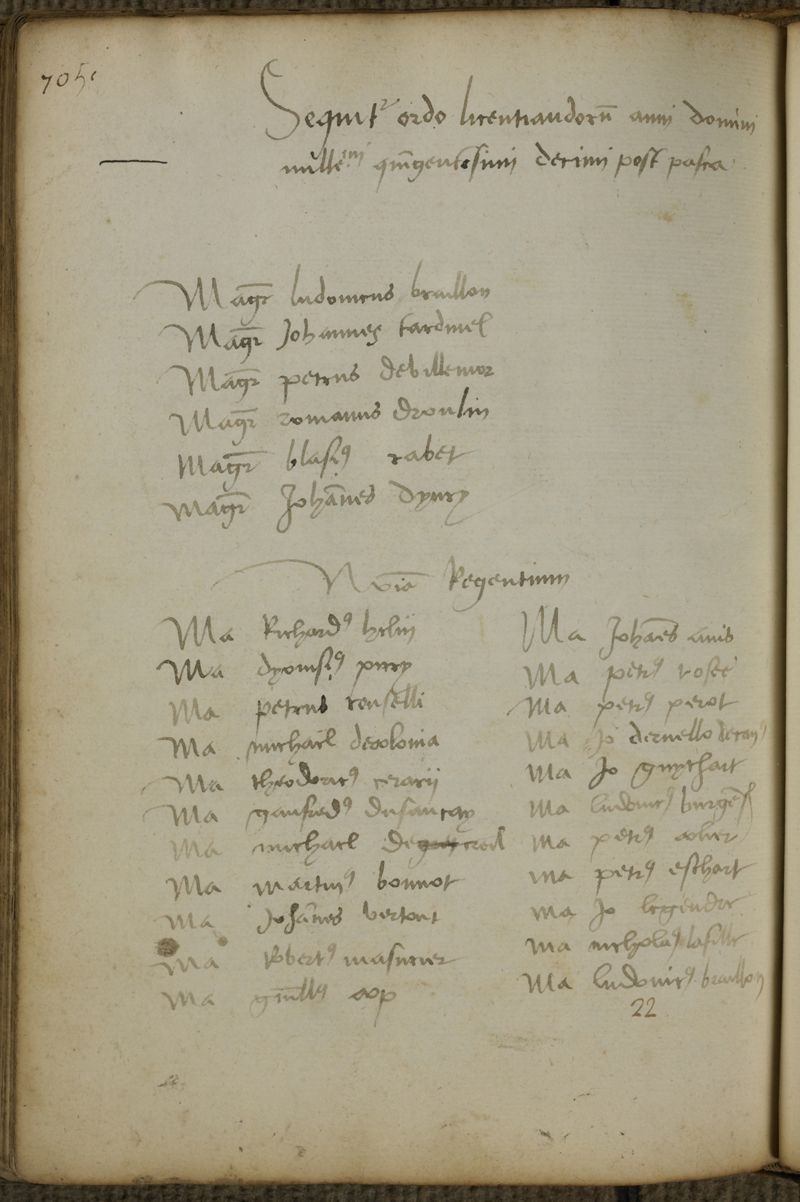 705
Sequitr ordo licentiandorū anni domini
millemi qīngentesimi decimi post pasca
Magr ludovicus braillon
Magr Johannes tardiuel
Magr petrus de villemor
Magr romanus droulin
Magr blasi9 rabet
Magr Johānes dyvry
Noīa Regentium
Ma Richard9 helin
Ma dyonisi9 pvry
Ma petrus rouselli
Ma michael decolonia
Ma theodoric9 cerarii
Ma gaufred9 dusaucay
Ma michael de creil
Ma martin9 bonnot
Ma Johānes bertout
Ma Robert9 masurier
Ma guillo9 cop
Ma Johāēs avis
Ma petr9 rosee
Ma petr9 perot
Ma Jo deruello decan9
Ma Jo guychart
Ma ludouic9 burgēs
Ma petr9
Ma petr9 eschart
Ma Jo legendre
Ma nichola9 lafille
Ma ludouic9 braillon
22